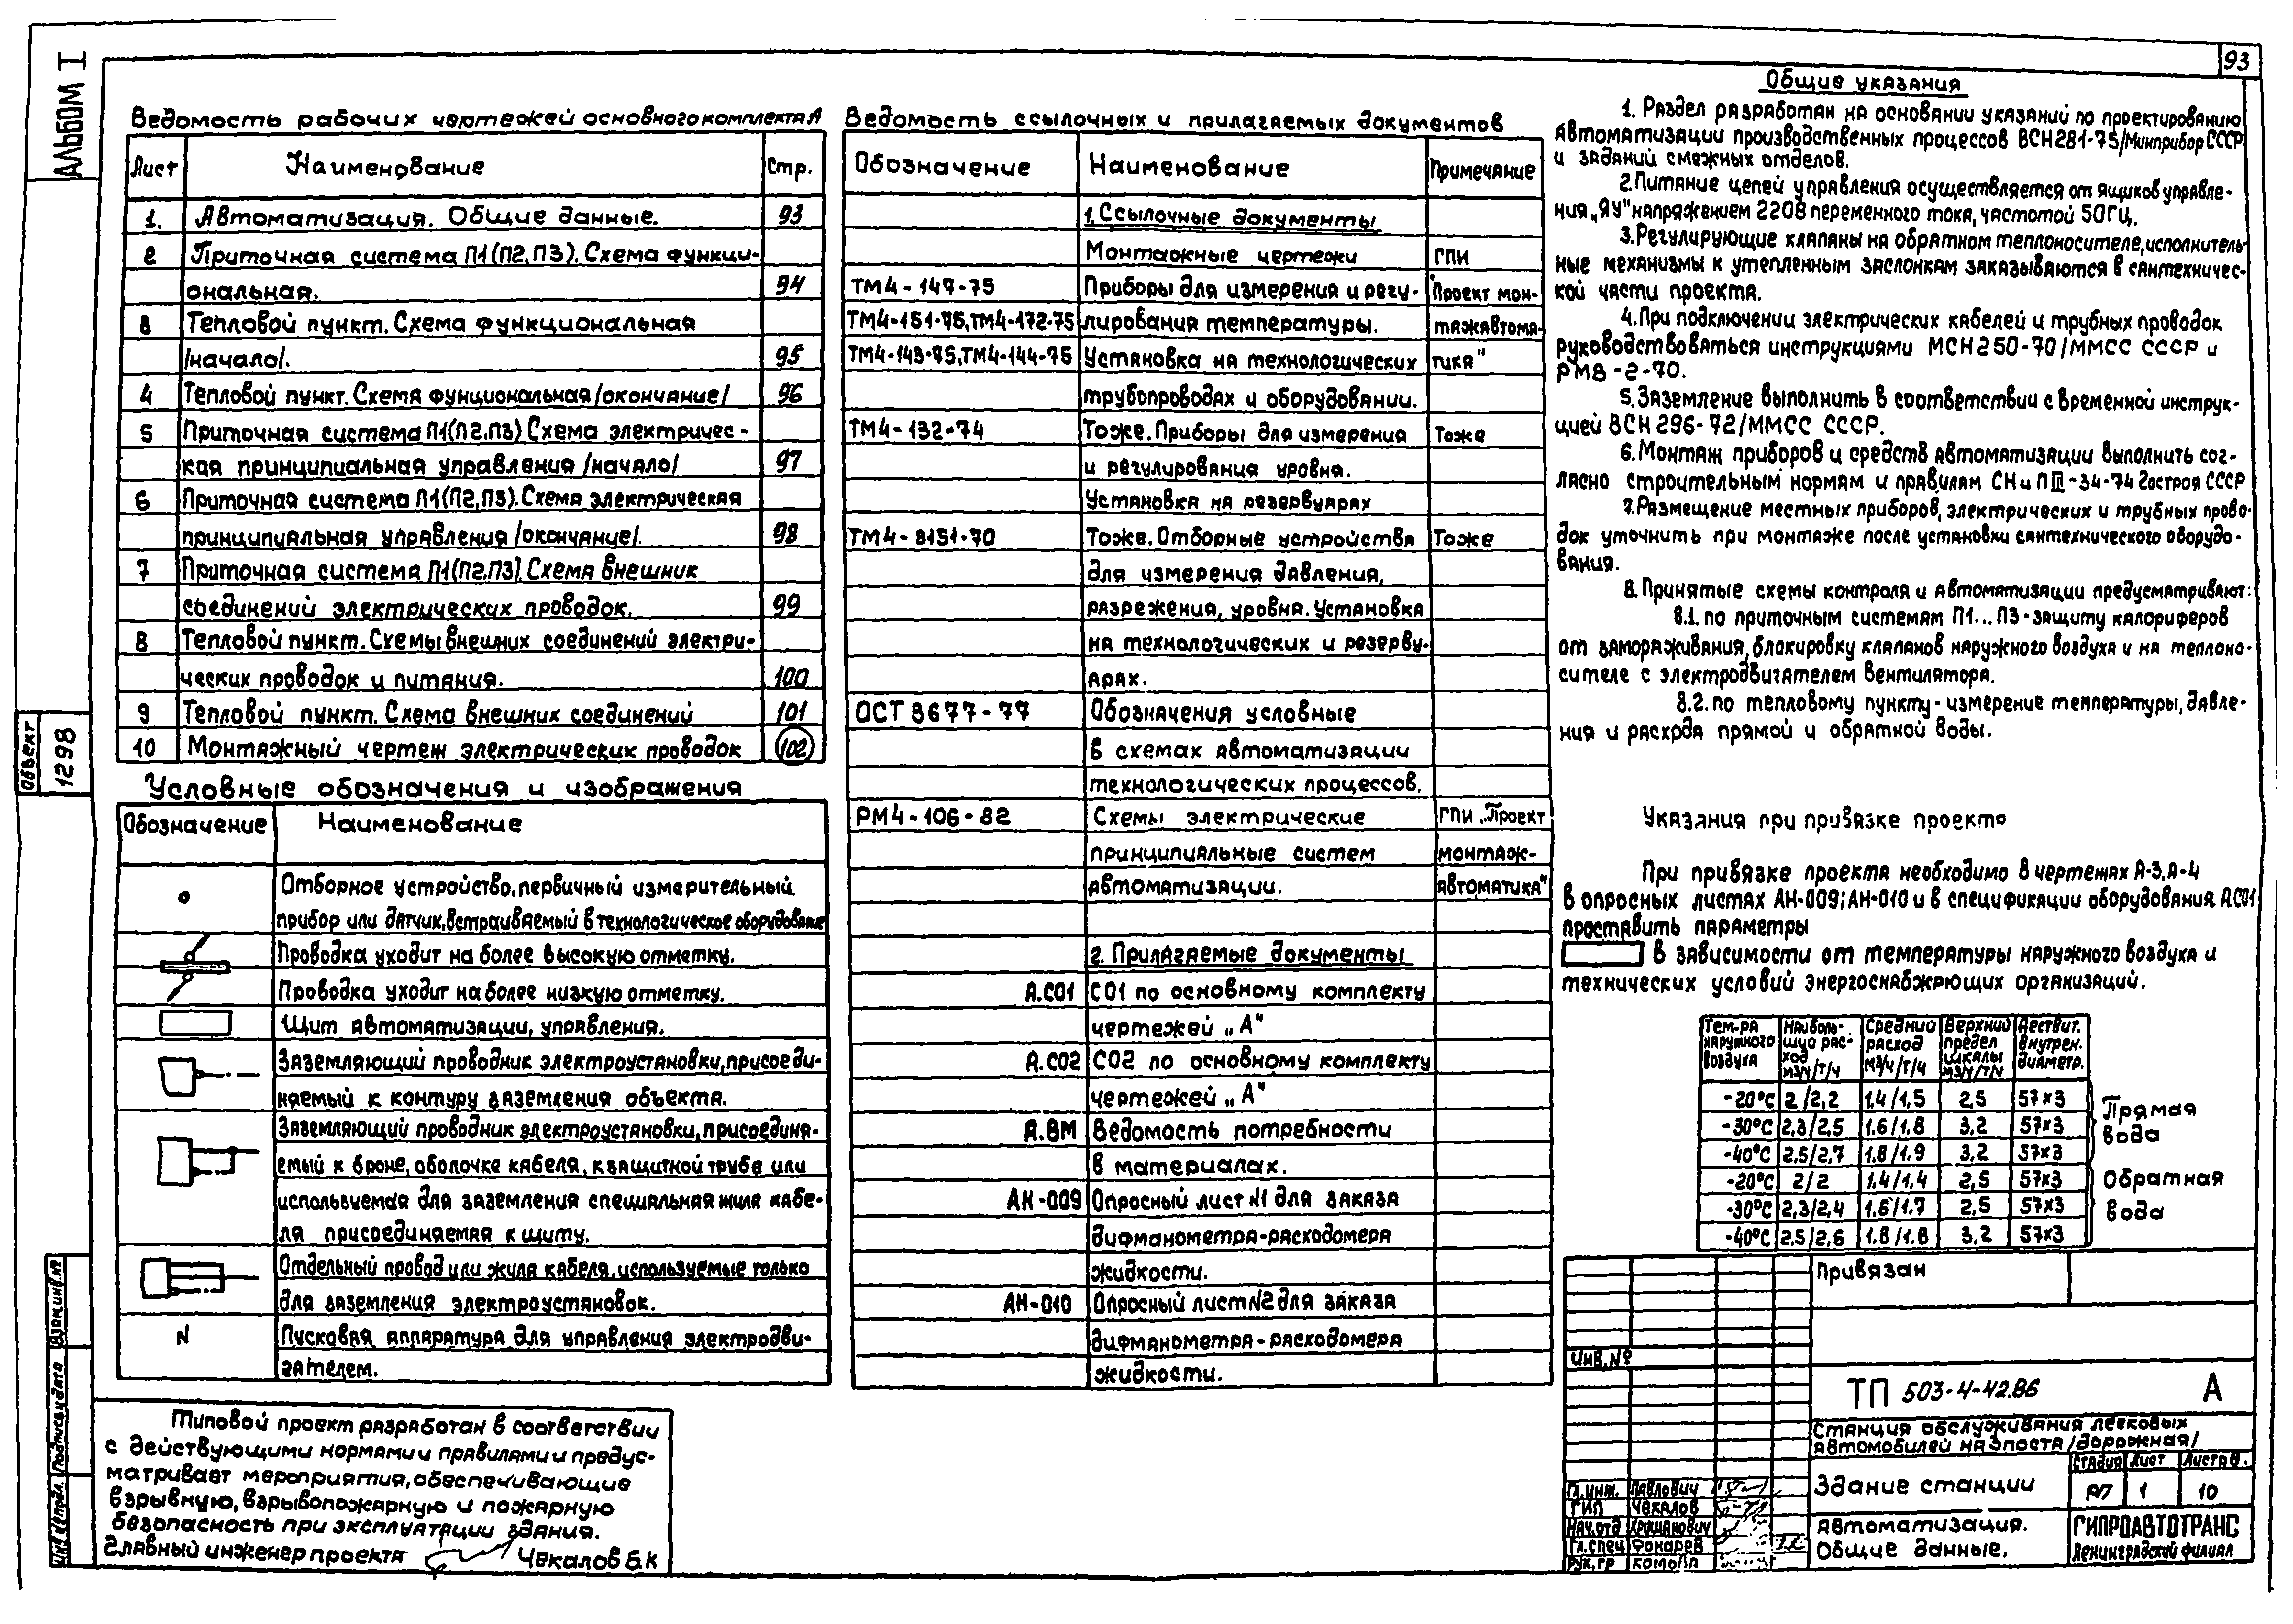 93
Альбом I
Объект
1298
Взам.инв.№
Подпись и дата
Инв.№ подл.
Ведомость рабочих чертежей основного комплекта А
Лист Наименование Стр.
1. Автоматизация. Общие данные. 93
2 Приточная система П1(П2,П3). Схема функци-
ональная. 94
3 Тепловой пункт. Схема функциональная
/начало/. 95
4 Тепловой пункт. Схема фунциональная /окончание/ 96
5 Приточная система П1(П2,П3) Схема электричес-
кая принципиальная управления /начало/ 97
6 Приточная система П1(П2,П3). Схема электрическая
принципиальная управления /окончание/. 98
7 Приточная система П1(П2,П3). Схема внешних
соединений электрических проводок. 99
8 Тепловой пункт. Схемы внешних соединений электри-
ческих проводок и питания. 100
9 Тепловой пункт. Схема внешних соединений 101
10 Монтажный чертеж электрических проводок 102
Условные обозначения и изображения
Обозначение Наименование
Отборное устройство, первичный измерительный
прибор или датчик, встраиваемый в технологическое оборудование
Проводка уходит на более высокую отметку.
Проводка уходит на более низкую отметку.
Щит автоматизации, управления.
Заземляющий проводник электроустановки, присоеди-
няемый к контуру заземления объекта.
Заземляющий проводник электроустановки, присоединя-
емый к броне, оболочке кабеля, к защитной трубе или
используемая для заземления специальная жила кабе-
ля присоединяемая к щиту.
Отдельный провод или жила кабеля, используемые только
для заземления электроустановок.
N Пусковая аппаратура для управления электродви-
гателем.
Типовой проект разработан в соответствии
с действующими нормами и правилами и предус-
матривает мероприятия, обеспечивающие
взрывную, взрывопожарную и пожарную
безопасность при эксплуатации здания.
Главный инженер проекта Чекалов Б.К
Ведомость ссылочных и прилагаемых документов
Обозначение Наименование Примечание
1. Ссылочные документы
Монтажные чертежи ГПИ
ТМ4-147-75 Приборы для измерения и регу- "Проект мон-
ТМ4-151-75, ТМ4-172-75 лирования температуры. тажавтома-
ТМ4-143-75, ТМ4-144-75 Установка на технологических тика"
трубопроводах и оборудовании.
ТМ4-132-74 Тоже. Приборы для измерения Тоже
и регулирования уровня.
Установка на резервуарах
ТМ4-3151-70 Тоже. Отборные устройства Тоже
для измерения давления,
разрежения, уровня. Установка
на технологических и резерву-
арах.
ОСТ 3677-77 Обозначения условные
в схемах автоматизации
технологических процессов.
РМ4-106-82 Схемы электрические ГПИ „Проект
принципиальные систем монтаж-
автоматизации. автоматика"
2. Прилагаемые документы
А.СО1 СО1 по основному комплекту
чертежей „А"
А.СО2 СО2 по основному комплекту
чертежей „А"
А.ВМ Ведомость потребности
в материалах.
АН-009 Опросный лист N1 для заказа
дифманометра-расходомера
жидкости.
АН-010 Опросный лист N2 для заказа
дифманометра-расходомера
жидкости.
Общие указания
1. Раздел разработан на основании указаний по проектированию
автоматизации производственных процессов ВСН281-75/Минприбор СССР
и заданий смежных отделов.
2. Питание цепей управления осуществляется от ящиков управле-
ния „ЯУ" напряжением 220В переменного тока, частотой 50Гц.
3. Регулирующие клапаны на обратном теплоносителе, исполнитель-
ные механизмы к утепленным заслонкам заказываются в сантехничес-
кой части проекта.
4. При подключении электрических кабелей и трубных проводок
руководствоваться инструкциями МСН250-70/ММСС СССР и
РМ8-2-70.
5. Заземление выполнить в соответствии с временной инструк-
цией ВСН 296-72/ММСС СССР.
6. Монтаж приборов и средств автоматизации выполнить сог-
ласно строительным нормам и правилам СНиП III-34-74 Госстроя СССР
7. Размещение местных приборов, электрических и трубных прово-
док уточнить при монтаже после установки сантехнического оборудо-
вания.
8. Принятые схемы контроля и автоматизации предусматривают:
8.1. по приточным системам П1...П3 - защиту калориферов
от замораживания, блокировку клапанов наружного воздуха и на теплоно-
сителе с электродвигателем вентилятора.
8.2. по тепловому пункту - измерение температуры, давле-
ния и расхода прямой и обратной воды.
Указания при привязке проекта
При привязке проекта необходимо в чертежах А-3, А-4
в опросных листах АН-009; АН-010 и в спецификации оборудования А.СО1
проставить параметры
в зависимости от температуры наружного воздуха и
технических условий энергоснабжающих организаций.
Тем-ра наружного воздуха Наиболь-ший рас-ход м3/ч/т/ч Средний расход м3/ч/т/ч Верхний предел шкалы м3/ч/т/ч Действит. внутрен. диаметр.
-20°С 2/2,2 1.4/1,5 2,5 57×3
-30°С 2,3/2,5 1.6/1.8 3,2 57×3
-40°С 2.5/2,7 1.8/1.9 3,2 57×3
Прямая
вода
-20°С 2/2 1.4/1,4 2,5 57×3
-30°С 2,3/2,4 1.6/1.7 2,5 57×3
-40°С 2,5/2,6 1.8/1.8 3,2 57×3
Обратная
вода
Привязан
Инв.№
ТП 503-4-42.86 А
Станция обслуживания легковых
автомобилей на 3 поста /дорожная/
Здание станции
Стадия Лист Листов.
РП 1 10
Автоматизация.
Общие данные.
ГИПРОАВТОТРАНС
Ленинградский филиал
Гл.инж. Павлович
ГИП Чекалов
Нач.отд Хришанович
Гл.спец Фонарев
Рук.гр Комова